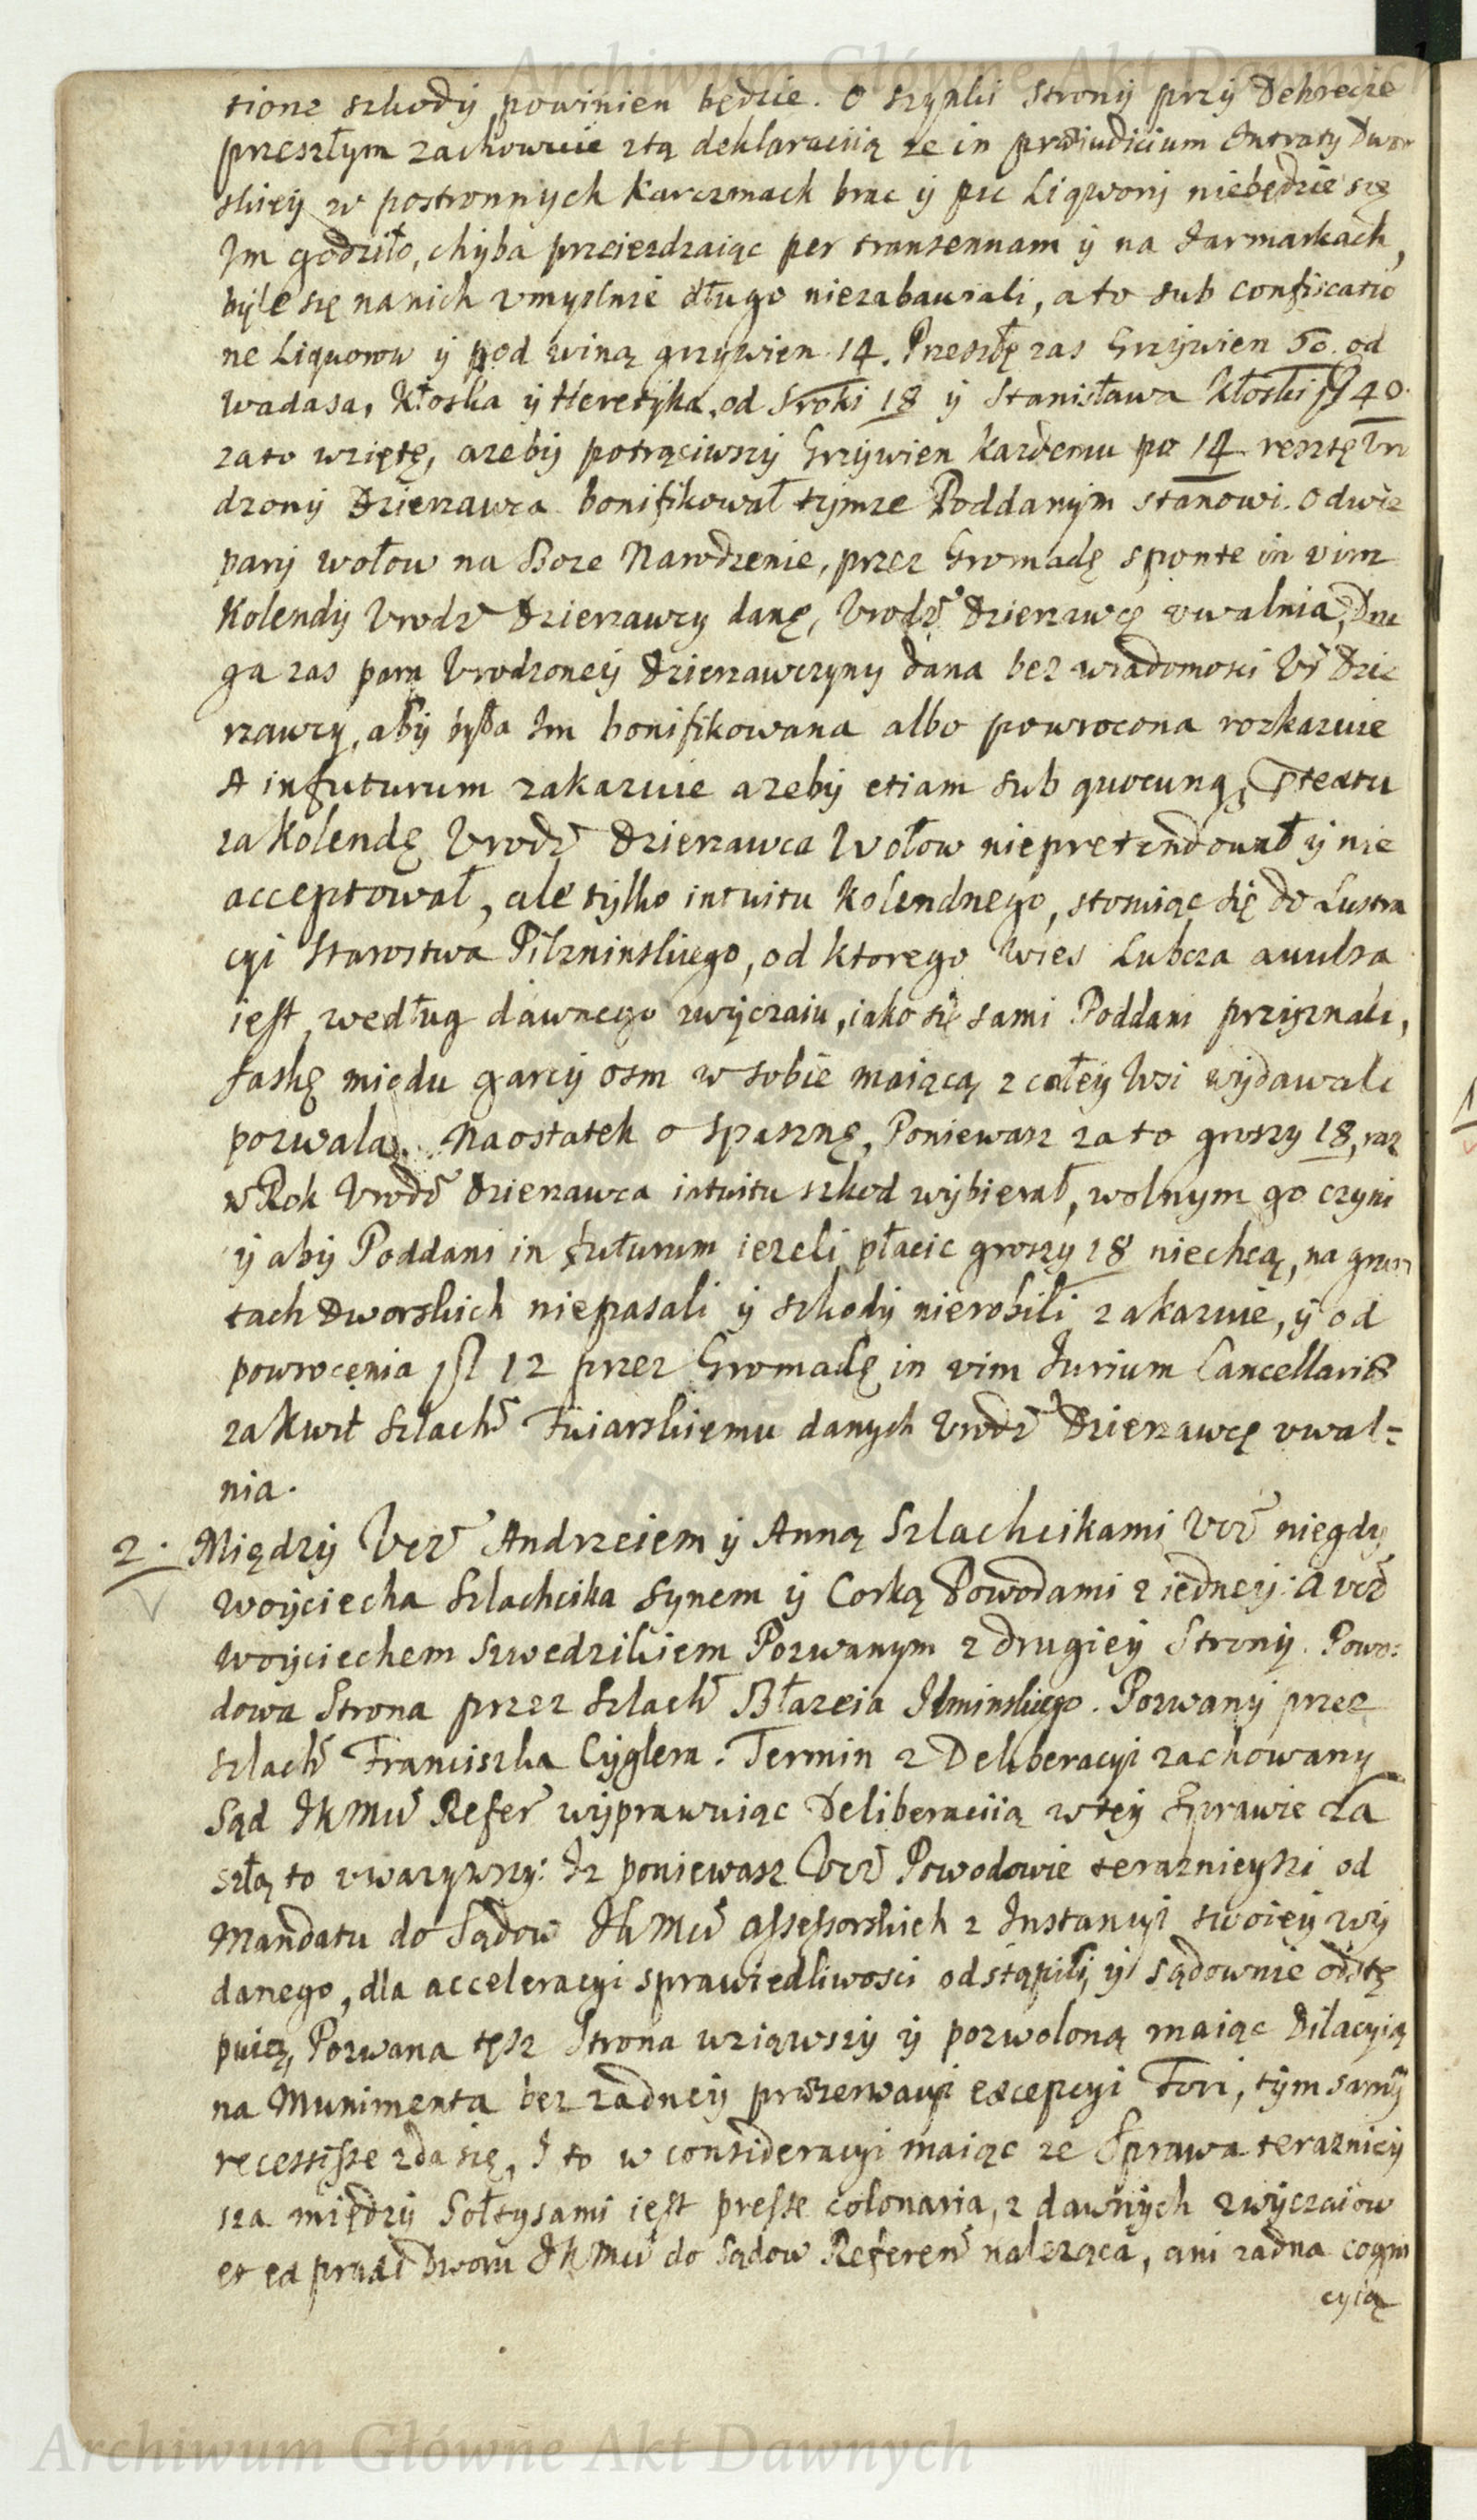 Archiwum Główne Akt Dawnych
tione szkody powinien będzie. O szynki Strony przy Dekrecie
przeszłym zachowuie z tą deklaraciią ze in præiudicium Intraty Dwor
skiey w postronnych Karczmach brac y pic Liqwory niebędzie się
Im godziło, chyba przeiezdzaiąc per transennam y na Jarmarkach,
byle się na nich vmyslnie długo niezabawiali, a to sub confiscatio
ne Liquorow y pod winą grzywien 14. Przeszłe zas Grzywien 50. od
Wadasa, Kłoska y Heretyka, od Sroki 18 y Stanisława Kłoski fl 40
za to wzięte, azeby potrąciwszy Grzywien kazdemu po 14 resztę Vro
dzony Dzierzawca bonifikował tymze Poddanym stanowi. O dwie
pary wołow na Boze Narodzenie, przez Gromadę sponte in vim
Kolendy Vrodz Dzierzawcy danę, Vrodz Dzierzawcę vwalnia, Dru
ga zas para Vrodzoney Dzierzawczyny dana bez wiadomosci Vr Dzie
rzawcy, aby była Im bonifikowana albo powrocona rozkazuie
A infuturum zakazuie azeby etiam sub quocunq, Ptextu
za Kolendę Vrodz Dzierzawca Wołow niepretendował y nie
acceptował, ale tylko intuitu Kolendnego, stosuiąc się do Lustra
cyi Starostwa Pilzninskiego, od ktorego Wies Lubcza avulsa
iest, według dawnego zwyczaiu, iako się sami Poddani przyznali,
faskę miodu garcy osm w sobie maiącą z całey Wsi wydawali
pozwala. Naostatek o Spasznę, Poniewasz za to groszy 18, raz
w Rok Vrodz Dzierzawca intuitu szkod wybierał, wolnym go czyni
y aby Poddani in futurum iezeli płacic groszy 18 niechcą, na grun
tach Dworskich niepasali y szkody nierobili zakazuie, y od
powrocenia fl 12 przez Gromadę in vim Jurium Cancellariæ
za Kwit Szlach Fuiarskiemu danych Vrodz Dzierzawcę vwal=
nia.
2. Między Vcz Andrzeiem y Anną Szlachcikami Vcz niegdy
Woyciecha Szlachcika Synem y Corką Powodami z iedney: A vcz
Woyciechem Szwedzikiem Pozwanym z drugiey Strony. Powo:
dowa Strona przez Szlach Błazeia Ilminskiego. Pozwany przez
Szlach Franciszka Cyglera. Termin z Deliberacyi zachowany
Sąd JKMci Refer wyprawuiąc Deliberaciią w tey Sprawie za
szłą to vwazywszy: Iz poniewasz Vcz Powodowie teraznieyszi od
Mandatu do Sądow JKMci Assessorskich z Instancyi swoiey wy
danego, dla acceleracyi sprawiedliwosci odstąpili, y sądownie odstę
puią, Pozwana tesz Strona wziąwszy y pozwoloną maiąc Dilacyią
na Munimenta bez zadney przezerwacyi excepcyi Fori, tym samy
recessisse zda się, I to w consideracyi maiąc ze Sprawa terazniey
sza między Sołtysami iest presse colonaria, z dawnych zwyczaiow
et ea praxi Dworu JKMci do Sądow Referen naleząca, ani zadna cogni
cyią
Archiwum Główne Akt Dawnych